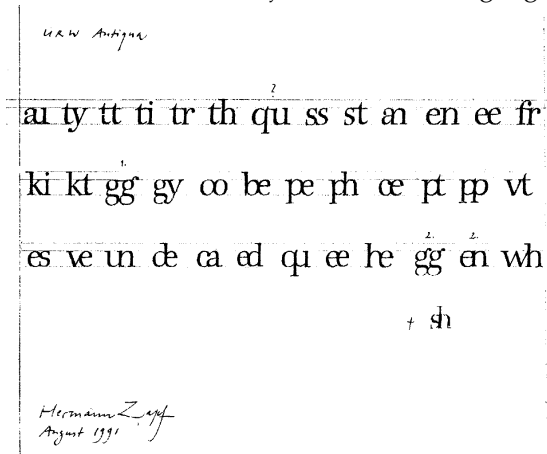 URW Antiqua
?
au ty tt ti tr th qu ss st an en ee fr
1.
ki kt gg gy co be pe ph œ pt pp vt
2. 2.
es ve un de ca ed qu æe he gg en wh
+ sh
Hermann Zapf
August 1991